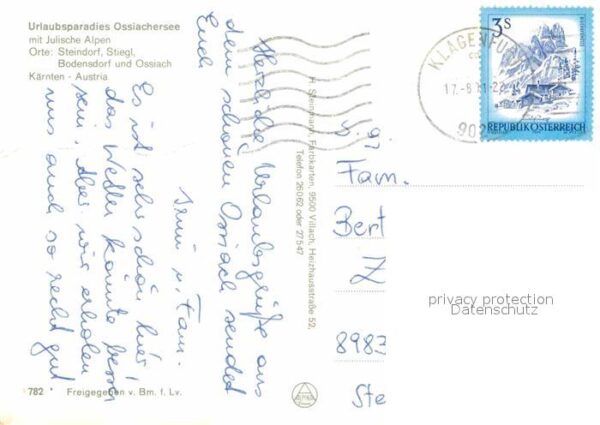 Urlaubsparadies Ossiachersee
mit Julische Alpen
Orte: Steindorf, Stiegl,
Bodensdorf und Ossiach
Kärnten - Austria
Herzliche Urlaubsgrüße aus
dem schönen Ossiach sendet
Euch
Irmi u. Fam.
Es ist sehr schön hier
das Wetter könnte besser
sein, aber wir erholen
uns auch so recht gut
782 Freigegeben v. Bm. f. Lv.
H. Steinmann, Farbkarten, 9500 Villach, Heizhausstraße 52,
Telefon 26062 oder 27547
KLAGENFURT
17.-8.81-22
902
3 S
REPUBLIK ÖSTERREICH
Fam.
Bert
Z
8983
Ste
privacy protection
Datenschutz